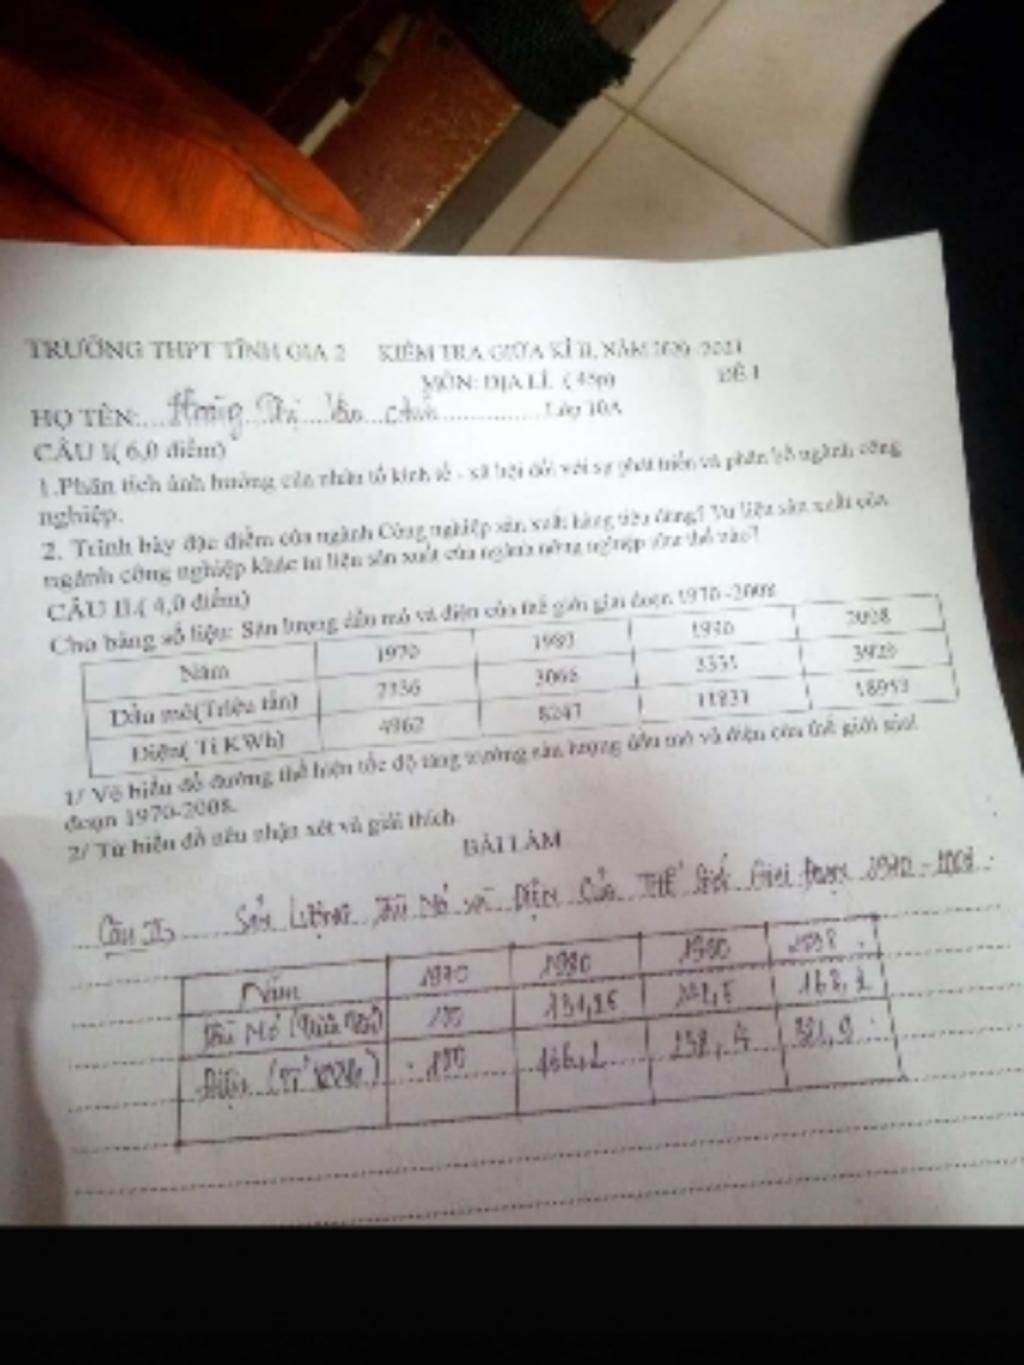 TRƯỜNG THPT TĨNH GIA 2 KIỂM TRA GIỮA KÌ II, NĂM 2020 -2021
MÔN: ĐỊA LÍ. ( 45p) ĐỀ 1
HỌ TÊN:....Hoàng Thị Vân Anh...............Lớp 10A
CÂU I( 6,0 điểm)
1.Phân tích ảnh hưởng của nhân tố kinh tế - xã hội đối với sự phát triển và phân bố ngành công
nghiệp.
2. Trình bày đặc điểm của ngành Công nghiệp sản xuất hàng tiêu dùng? Tư liệu sản xuất của
ngành công nghiệp khác tư liệu sản xuất của ngành nông nghiệp như thế nào?
CÂU II.( 4,0 điểm)
Cho bảng số liệu: Sản lượng dầu mỏ và điện của thế giới giai đoạn 1970 -2008
Năm 1970 1990 2008
Dầu mỏ(Triệu tấn) 2336 3066 3331 3929
Điện( Tỉ KWh) 4962 8247 11831 18953
1/ Vẽ biểu đồ đường thể hiện tốc độ tăng trưởng sản lượng dầu mỏ và điện của thế giới giai
đoạn 1970-2008.
2/ Từ biểu đồ nêu nhận xét và giải thích
BÀI LÀM
Câu II, Sản Lượng Dầu Mỏ và Điện Của Thế Giới Giai Đoạn 1970 - 2008.
Năm 1970 1980 1990
Dầu Mỏ 100
Điện 100 166,2 238,4